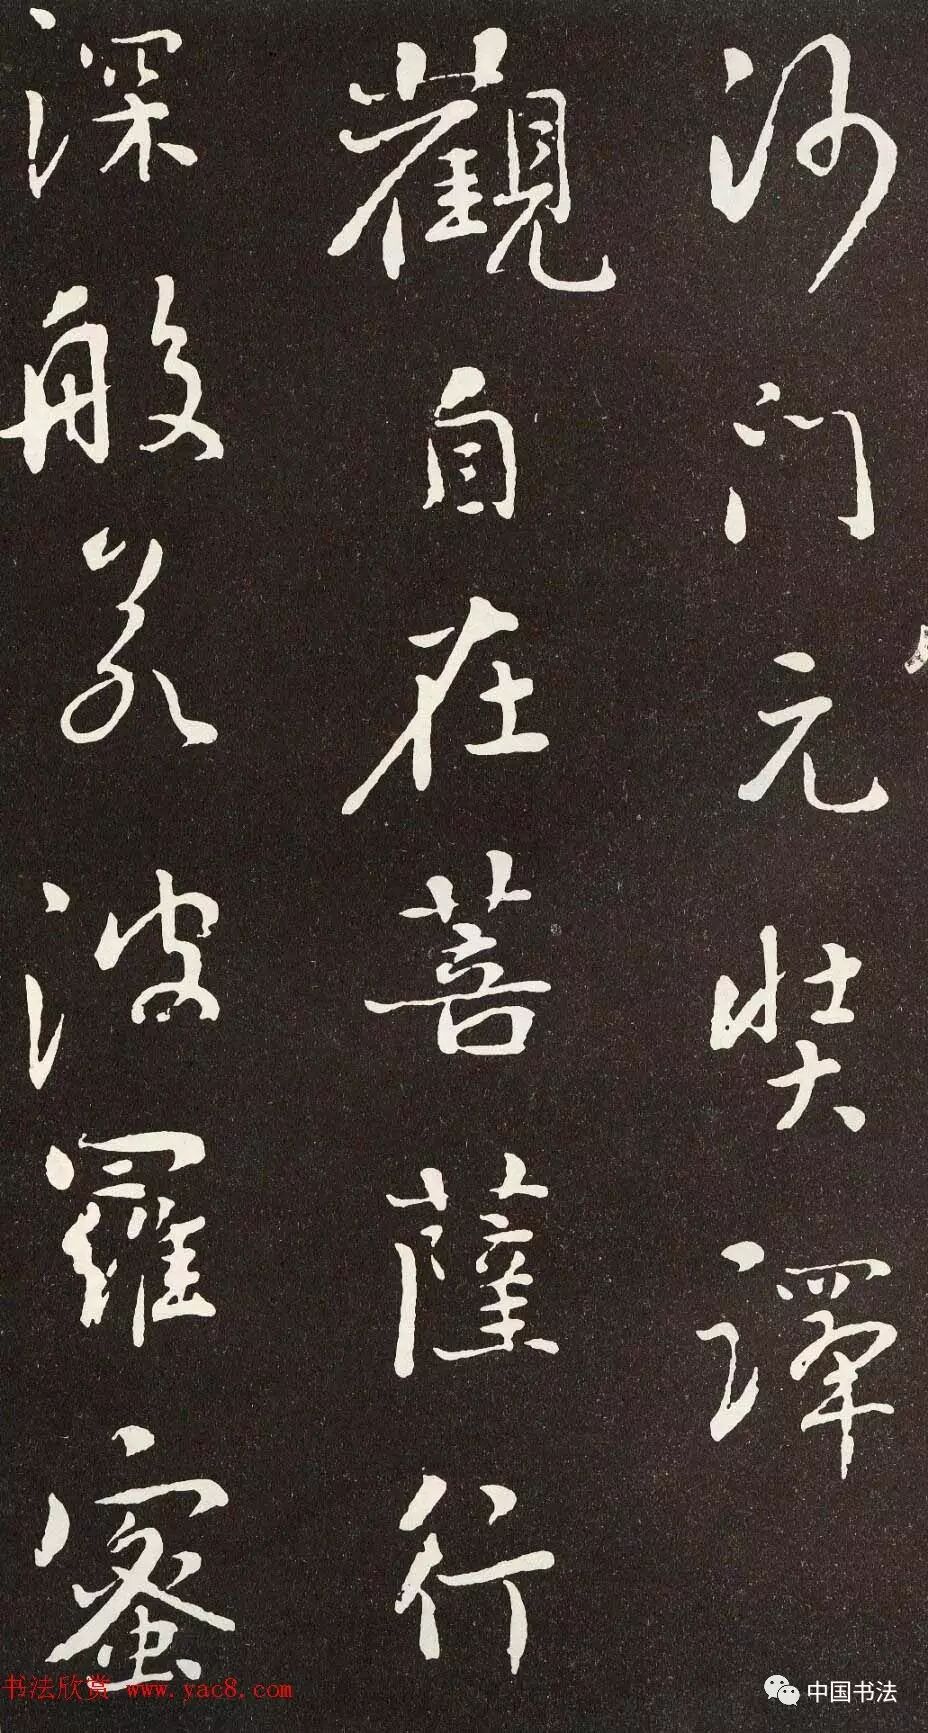 沙門元奘譯
觀自在菩薩行
深般若波羅蜜
书法欣赏 www.yac8.com
中国书法